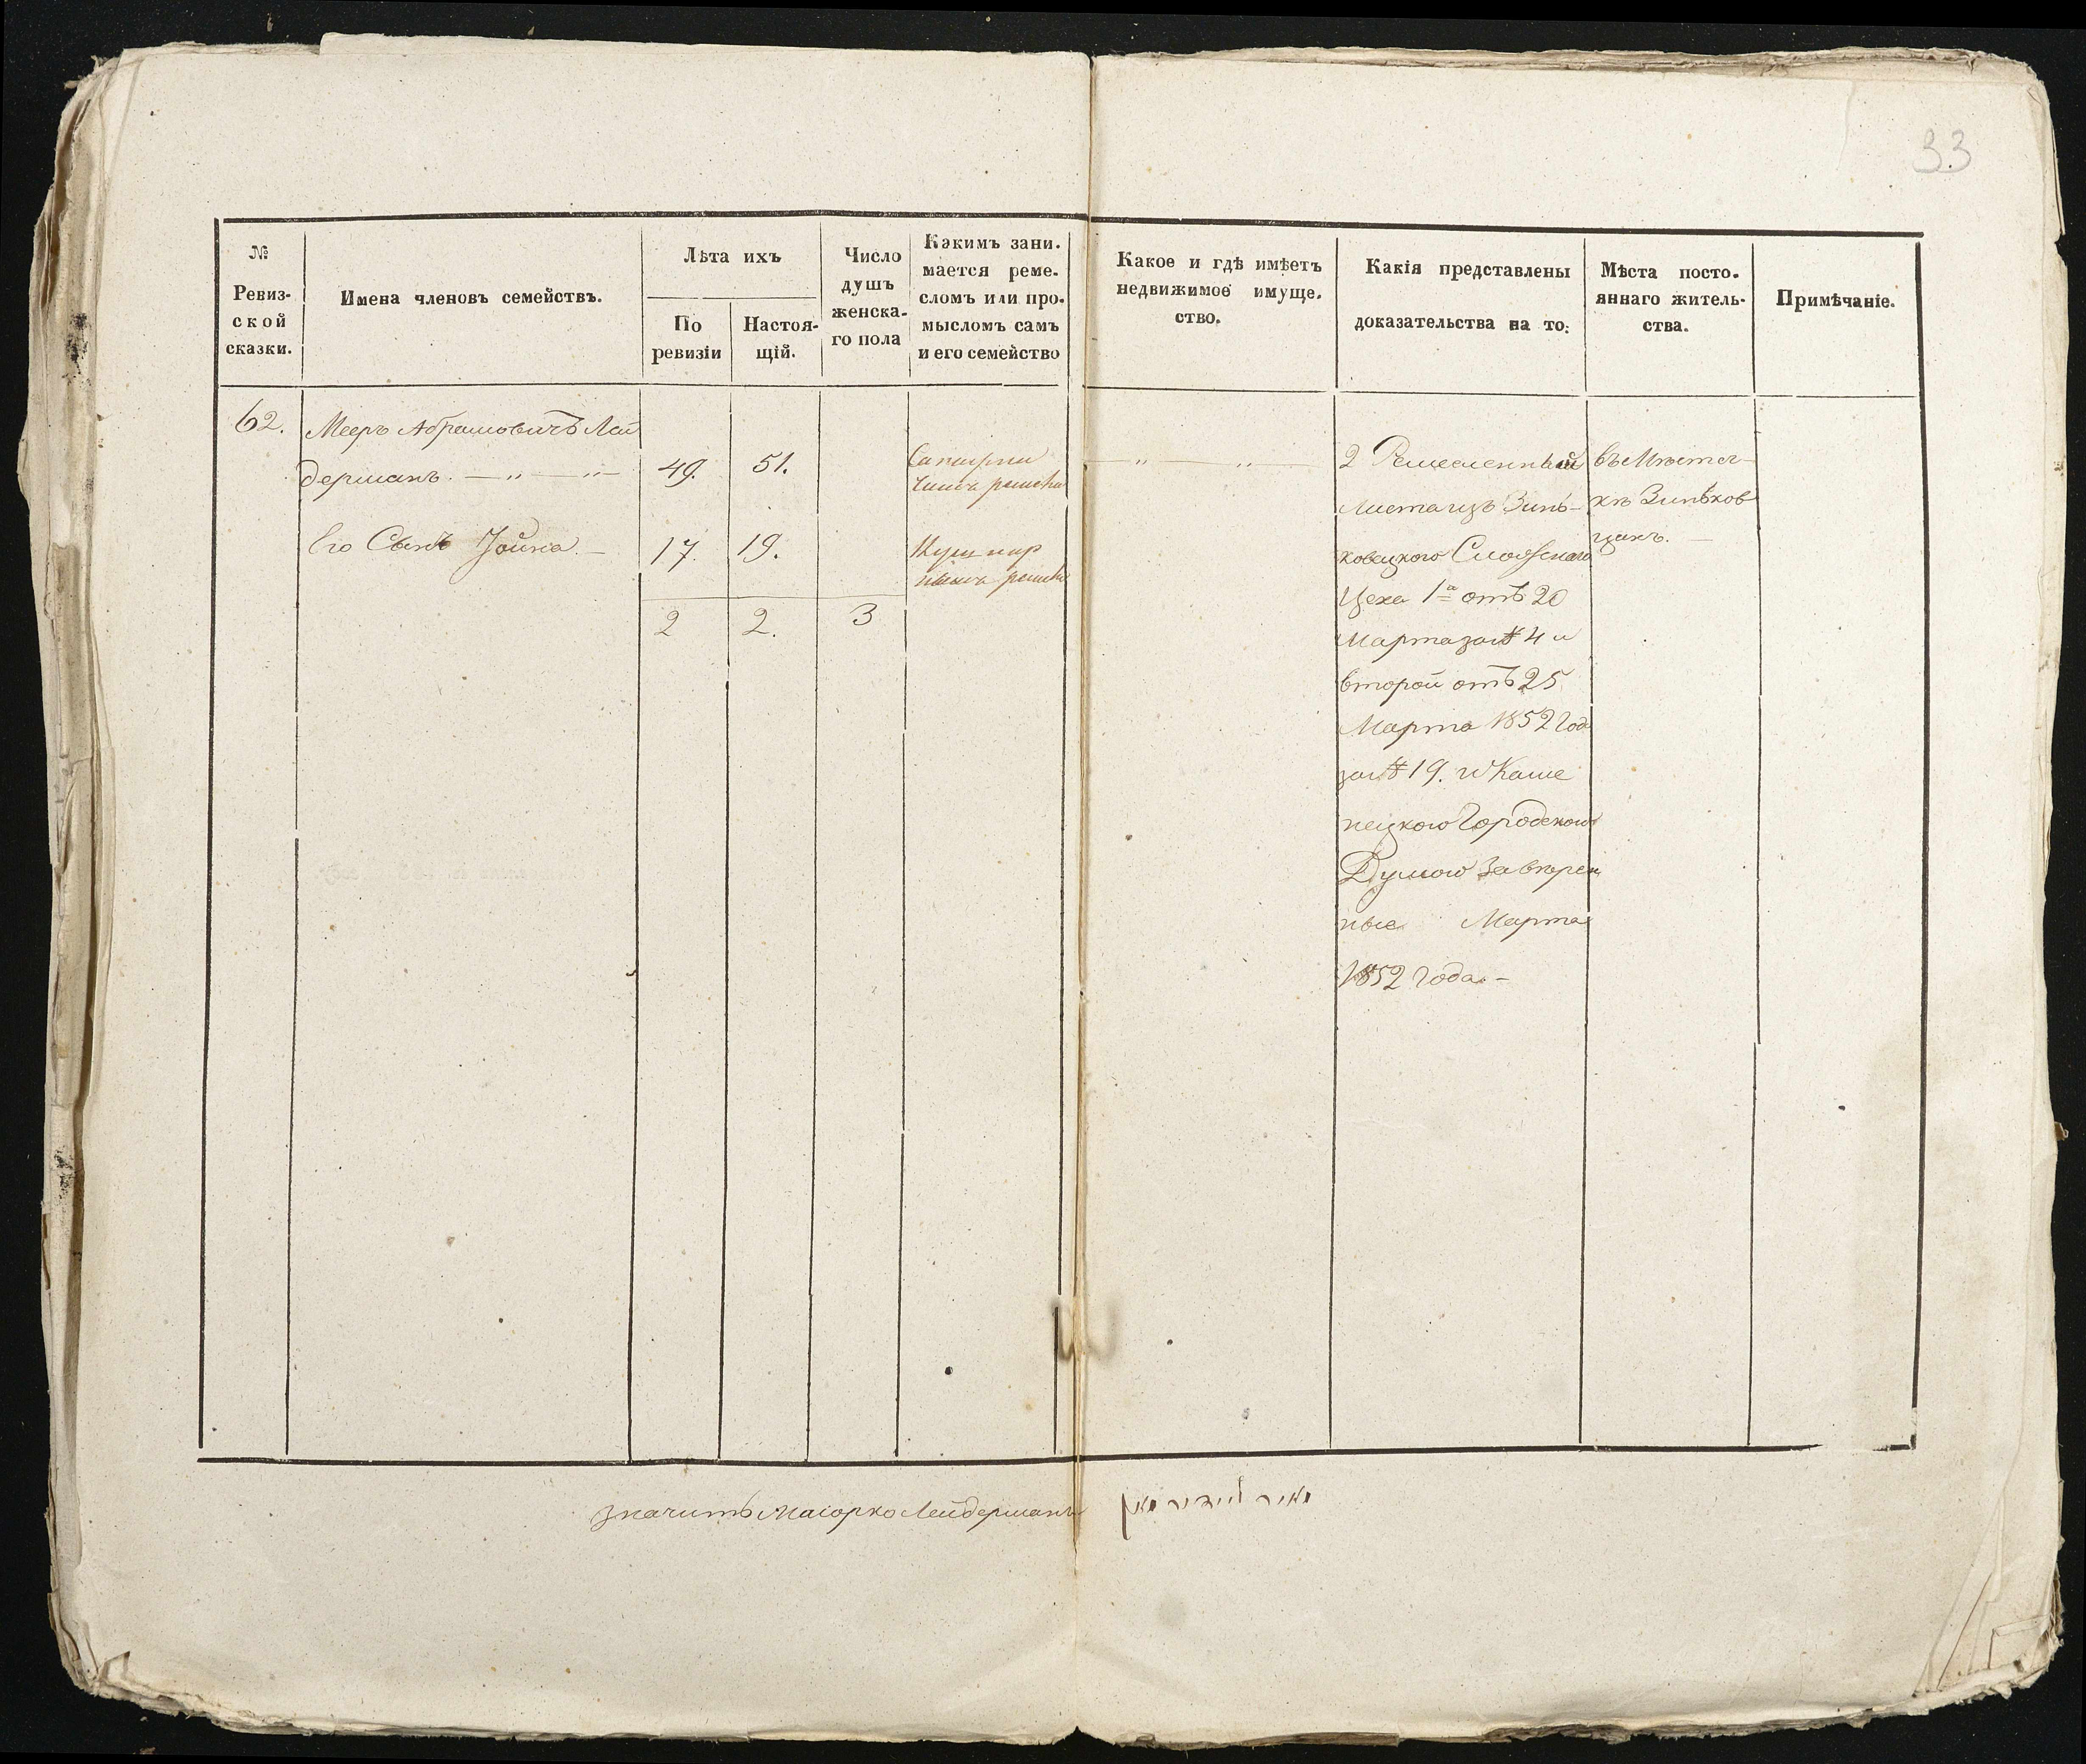 33
№ Ревиз-ской сказки.
Имена членовъ семействъ.
Лѣта ихъ
По ревизіи
Настоя-щій.
Число душъ женска-го пола
Какимъ зани-мается реме-сломъ или про-мысломъ самъ и его семейство
Какое и гдѣ имѣетъ недвижимое имуще-ство.
Какія представлены доказательства на то:
Мѣста посто-яннаго житель-ства.
Примѣчаніе.
62.
Мееръ Абрамовичъ Лей
дерманъ. — „ — „ —
49.
51.
Его Сынъ Іойна. —
17.
19.
2
2.
3
— „ — „ —
2 Ремесленный
Листа изъ Зинь-
ковецкого
Цеха 1й отъ 20
Марта за № 4 и
второй отъ 25
Марта 1852 Года
за № 19. и Каме
нецкою Городскою
Думою Завѣрен
ные Марта
1852 Года. —
въ Мѣстеч-
кѣ Зиньков
цахъ. —
значитъ Маіорко Лейдерманъ
מאיר ליידירמאן